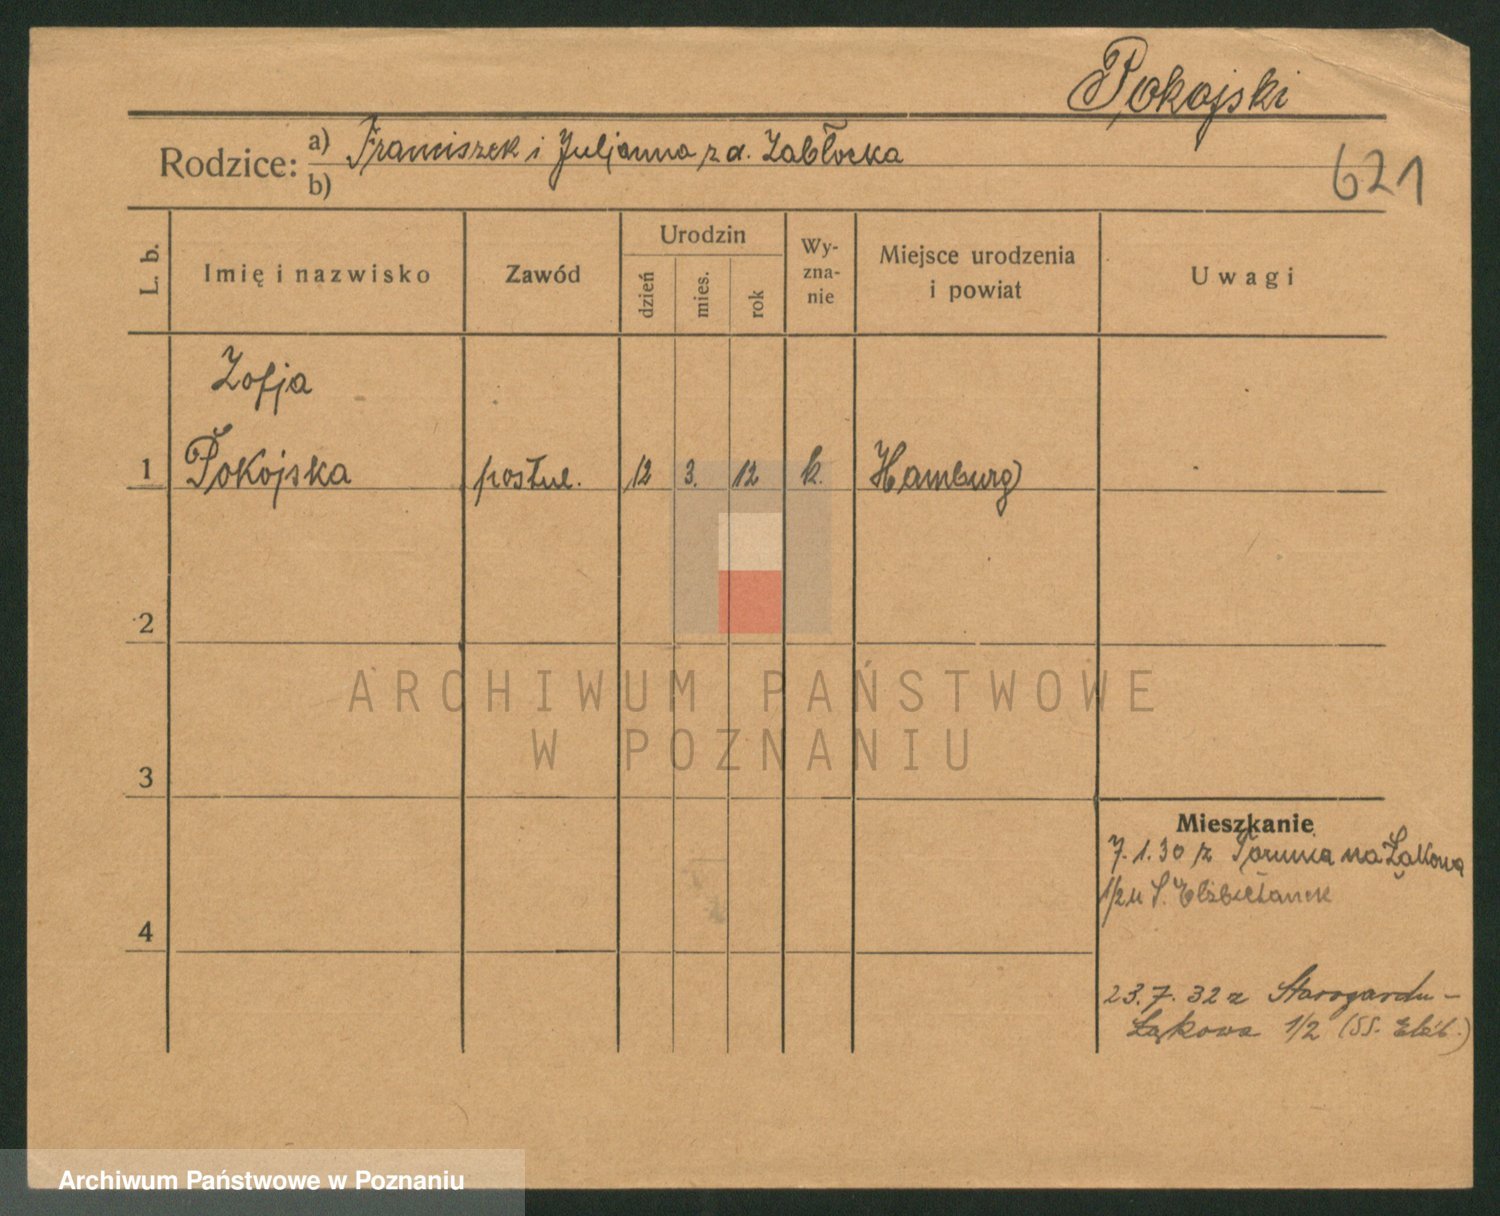 Pokojski
Rodzice: a) Franciszek i Juljanna z d. Zabłocka
b)
621
L. b.
Imię i nazwisko
Zawód
Urodzin
dzień
mies.
rok
Wy-
zna-
nie
Miejsce urodzenia
i powiat
Uwagi
Zofja
1 Pokojska postul. 12 3. 12 k. Hamburg
2
3
4
Mieszkanie
7.1.30 z Torunia na Łąkowa
1/2 u S. Elżbietanek
23.7.32 z Starogardu -
Łąkowa 1/2 (SS. Elżb.)
ARCHIWUM PAŃSTWOWE
W POZNANIU
Archiwum Państwowe w Poznaniu